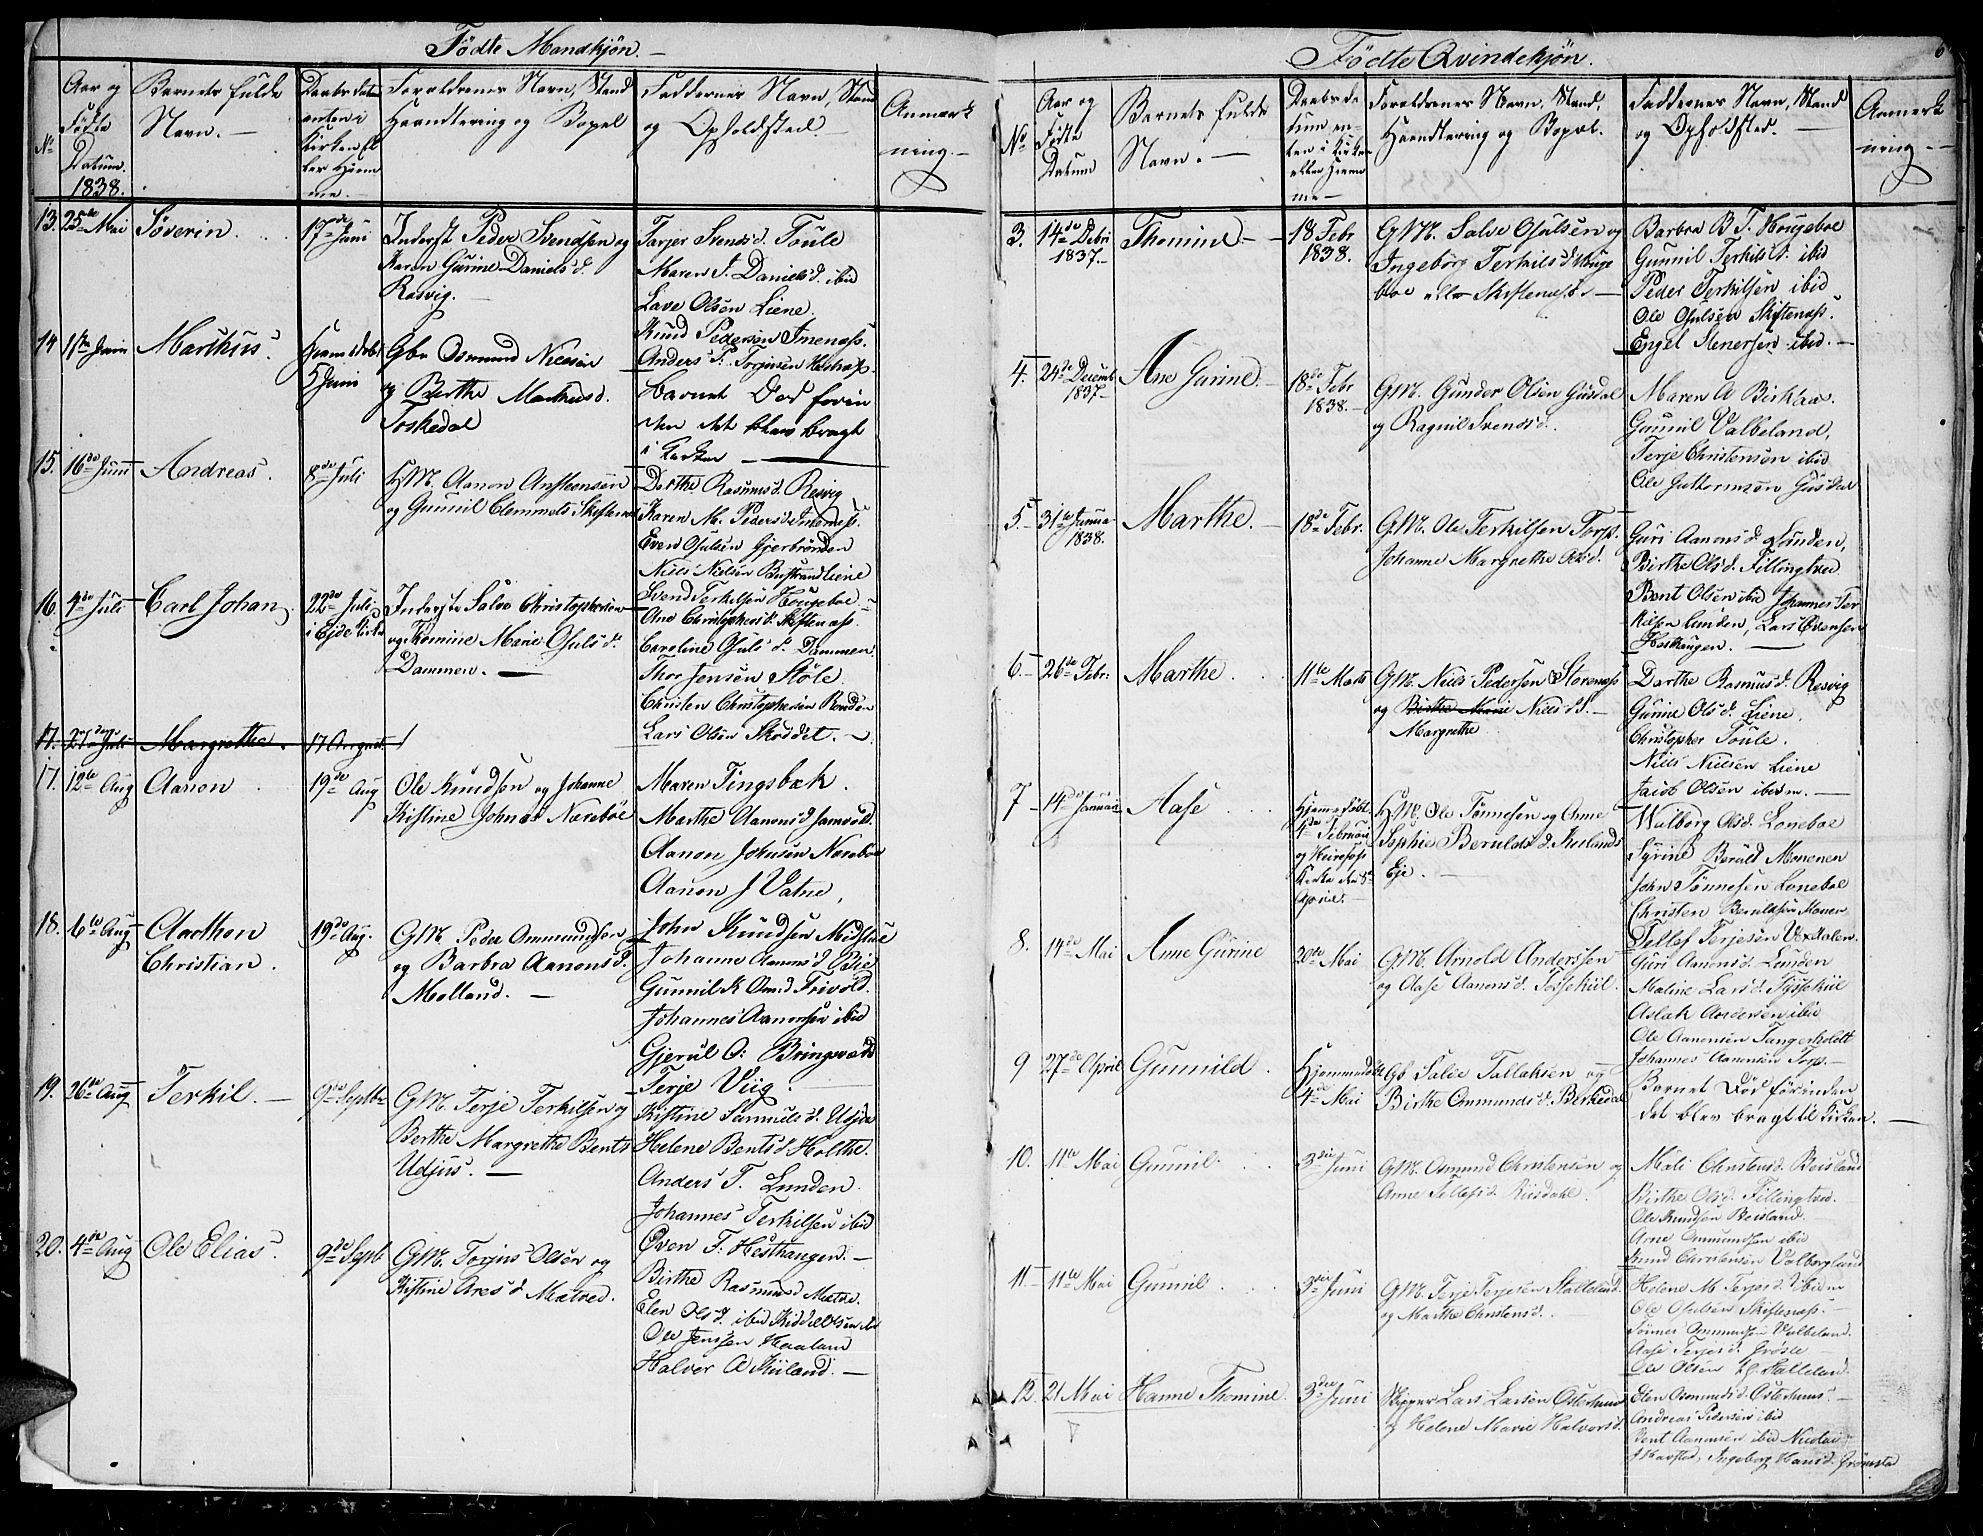 Födte Mandkjön.
No
Aar og Födte Datum. 1838.
Barnets fulde Navn.
Daabs datum enten i Kirken eller Hjemme
Foraldrenes Navn, Stand Haandtering og Bopel
Faddernes Navn, Stand og Opholdsted.
Anmærkning.
13. 25de Mai Söverin. 17de Juni
Inderst Peder Svendsen og
Karen Gurine Daniels d.
Rosvig.
Tarjer Svends d. Toule
Maren J. Daniels d. ibid
Lave Olsen Liene.
Knud Pedersen Imenæss.
Anders T. Torjusen
14 1ste Juni Markus. Hjemmedöbt 5 Juni
Gbr Osmund Nielsen
og Berthe Markus d.
Toskedal
Barnet Död forinden det blev bragt
i Kirken
15. 16de Juni Andreas. 8de Juli
H.M. Aanon Anstensen
og Gunnil Clemmets d. Skiftenes
Dorthe Rasmus d. Resvig
Karen M. Peders d. Imenæss.
Even Osulsen Gjerbrönden
Niels Nielsen Bustrand Liene
16. 4de Juli Carl Johan. 22de Juli i Eide Kirke
Inderste Salve Christophersen
og Thomine Marie Osuls d.
Dammen.
Svend Terkilsen Hougeboe
Ane Christophers d. Skiftenæss.
Caroline Osuls d. Dammen.
Thor Jensen Stöle.
Christen Christophersen Ronden
Lars Olsen Skoddet.
17. 27de Juli Margrethe. 17 August
17. 12te Aug Aanon 19de Aug
Ole Knudsen og Johanne
Kistine Johns d. Næreböe
Maren Tingsbæk.
Marthe Aanons d. Jomvold.
Aanon Johnsen Næreböe
Aanon J Vatne,
18. 6te Aug Aadthon Christian. 19de Aug.
GM. Peder Ommundsen
og Barbra Aanons d.
Molland.
John Knudsen Midhave
Johanne Aanons d.
Gunnil K Osm d. Frivold.
Johannes Aanonsen ibid
Gjerul O: Bringsværd
19. 26de Aug Terkil. 9de Septbr
GM. Terje Terkilsen og
Berthe Margrethe Bents
Udjus.
Terje Viig.
Kistine Samuels d. Udjus
Helene Bents d. Holthe.
Anders T. Lunden.
Johannes Terkilsen ibid
20. 4de Aug Ole Elias. 9de Septb
GM. Torjus Olsen og
Kistine Ares d. Mætved.
Oven T: Hesthaugen.
Birthe Rasmus d Mætve.
Elen Ols d. ibid
Ole Jenssen Haaland
Halver A Kuland.
Födte Qvindekjön.
6
No
Aar og Födte Datum
Barnets fulde Navn.
Daabs datum enten i Kirken eller Hjemme
Foraldrenes Navn, Stand. Haandtering og Bopel.
Faddernes Navn, Stand og Opholdsted.
Anmerkning.
3. 14de Debri 1837. Thomine. 18 Febr 1838.
GM. Salve Osulsen og
Ingeborg Terkils d Houge
boe eller Skiftenæss.
Barbra B. T. Hougeboe
Gunnil Terkils d. ibid
Peder Terkilsen ibid
Ole Osulsen Skiftenæss.
Engel Stenersen ibid.
4. 24de Decemb 1837. Ane Gurine. 18de Febr 1838.
GM. Gunder Olsen Gusdal
og Ragnil Svends d.
Maren A Birklaa.
Gunnil Valbeland,
Terje Christensen ibid
Ole Guttormsen Gusdal
5. 31te Janua 1838. Marthe. 18de Febr.
G.M. Ole Terkilsen Torp.
Johanne Margrethe Ols d.
Guri Aanons d. Lunden,
Birthe Ols d. Fillingtved
Bent Olsen ibid Johannes Ter
kilsen Lunden, Lars Evensen
Hesthaugen.
6. 26de Febr: Marthe. 11te Marts
GM. Niels Pedersen Storenæss
og Birthe Marie Niels d.
Margrethe
Dorthe Rasmus d. Resvig
Gurine Ols d. Liene.
Christopher Toule.
Niels Nielsen Liene
Jacob Olsen ibid m.
7 14de Januari Aase Hjemmedöbt 4de Februari og Heirefoss Kirke den 8de Aprie.
H.M. Ole Tönnesen og Anne
Sophie Berulds d. Kuelands
Eje.
Walborg Ols d. Loneboe
Syrine Beruld Monenen
John Tönnesen Loneboe
Christen Beruldsen Monen
Tellef Terjesen Vexdalen.
8. 14de Mai Anne Gurine 20de Mai
G.M. Arnold Anderssen
og Aase Aanons d. Tossekiil.
Guri Aanons d. Lunden
Maline Lars d. Tyssekiil
Aslak Andersen ibid
Ole Aanonsen Fungerholdt
Johannes Aanonsen Torp.
9 27de April Gunnild. Hjemmedöbt 4de Mai
Gb Salve Tallaksen og
Birthe Ommunds d. Birkedal
Barnet död forinden
det blev bragt til Kirken.
10. 11te Mai Gunnil. 3die Juni
GM. Osmund Christensen og
Anne Tellefs d. Riisdahl.
Mali Christens d. Beisland
Birthe Ols d. Fillingtved.
Ole Knudsen Beisland.
Arne Ommundsen ibid
Knud Christensen Valborgland
11 11te Mai Gunnil. 3die Juni
G.M. Terje Terjesen Stalleland.
og Marthe Christens d.
Helene M Terjes d. ibid m
Ole Osulsen Skiftenæss.
Tönnes Ommundsen Valbeland.
Aase Terjes d. Gröste
Ole Olsen Stalleland.
12 21 Mai Hanne Thomine. 3die Juni
Skipper Lars Larsen Osterhuus
og Helene Marie Halvors d.
Elen Osmunds d. Osterhuus
Andreas Pedersen ibid
Bent Aanonsen ibid
Ingeborg Hans d. Grömstad